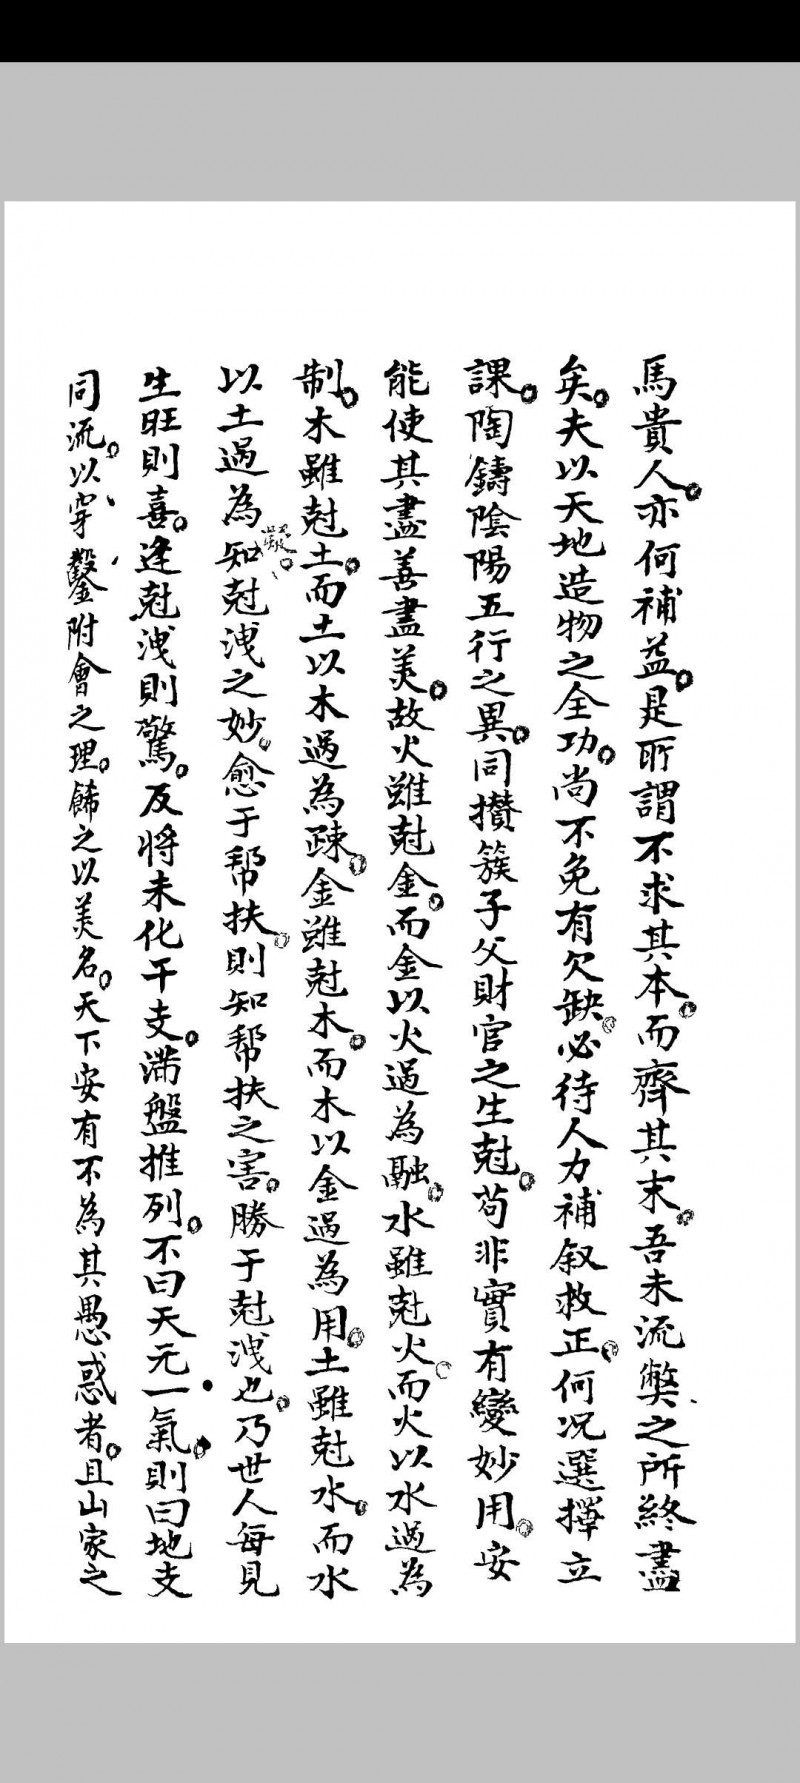 馬貴人。亦何補益。是所謂不求其本。而齊其末。吾未流獘之所終盡
矣。夫以天地造物之全功。尚不免有欠缺。必待人力補叙救正。何况選擇立
課。陶鑄陰陽五行之異。同攢簇子父財官之生尅。苟非實有變妙用。安
能使其盡善盡美。故火雖尅金。而金以火過為融。水雖尅火。而火以水過為
制。木雖尅土。而土以木過為疎。金雖尅木。而木以金過為用。土雖尅水。而水
以土過為凝。知尅洩之妙。愈于帮扶。則知帮扶之害。勝于尅洩也。乃世人每見
生旺則喜。逢尅洩則驚。反將未化干支。滿盤推列。不曰天元一氣。則曰地支
同流。以穿鑿附會之理。餙之以美名。天下安有不為其愚惑者。且山家之